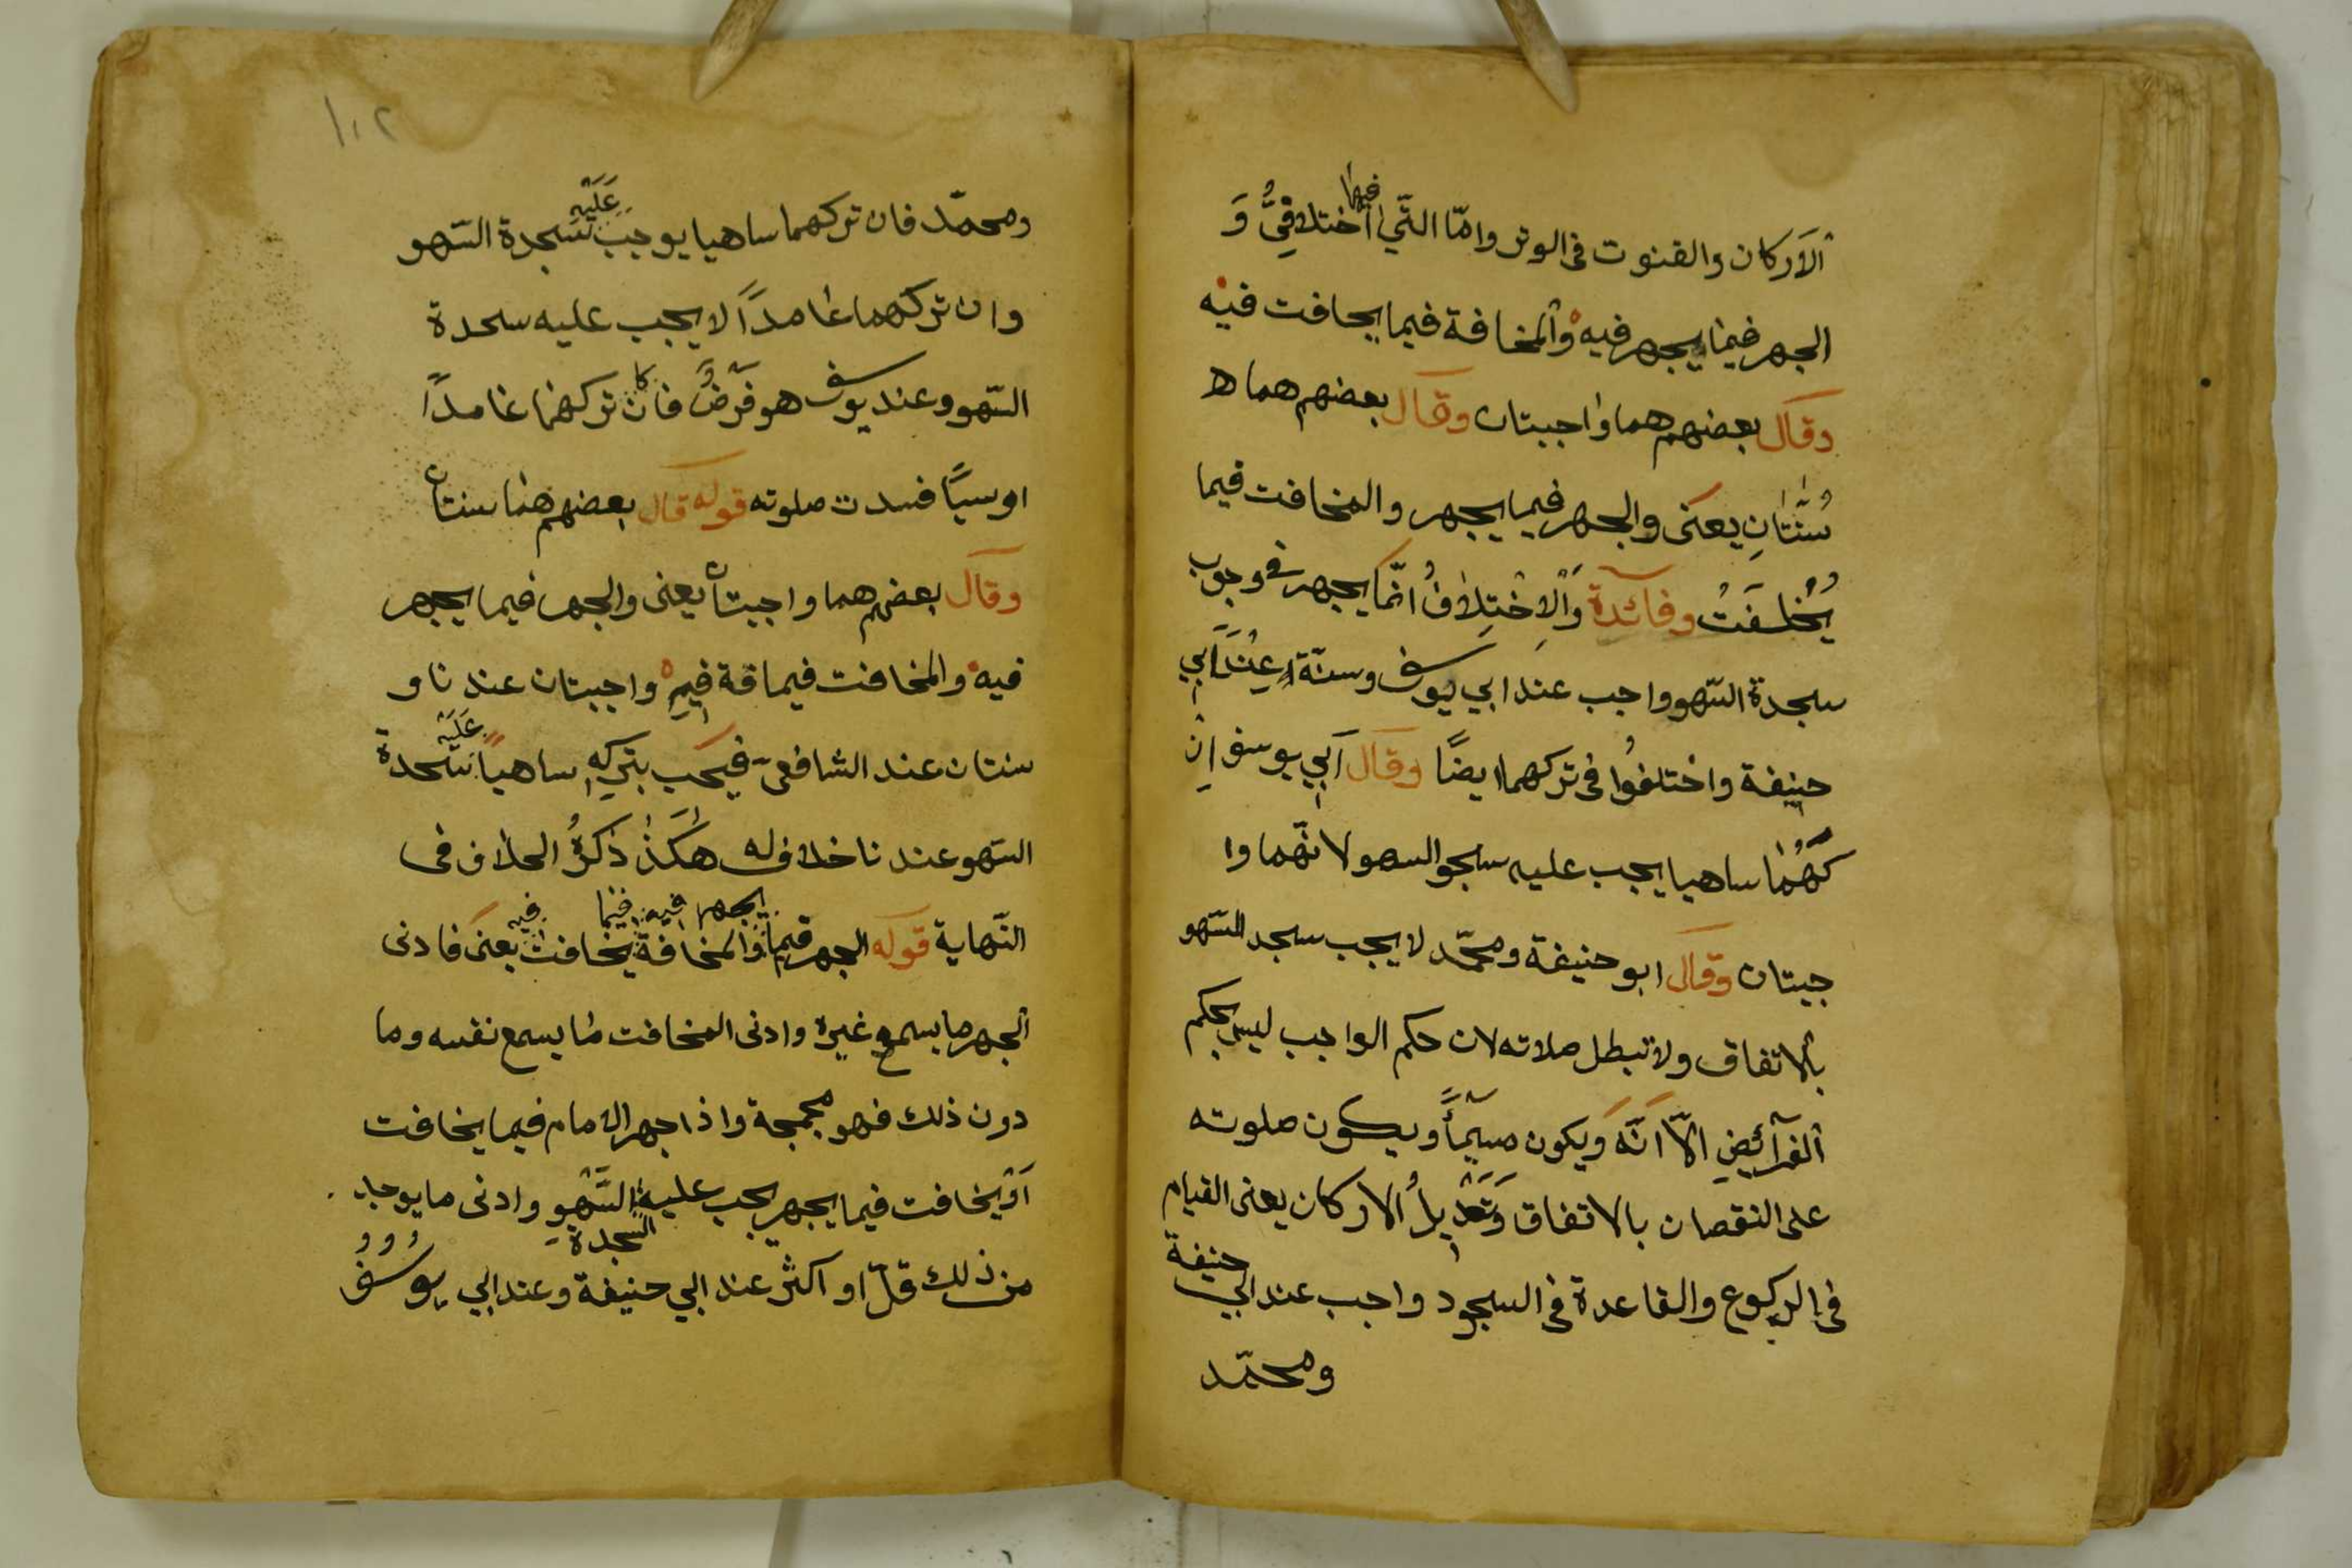 الاَركان والقنوت فى الوتر وامّا التّي فيها اختلافىٌّ وَ
الجهر فيما يجهر فيه والمخافة فيما يحافت فيه
وقال بعضهم هما واجبتان وقال بعضهم هما ه
سُنَّتانِ يعنى والجهر فيما يجهر والمخافت فيما
يُخْافَتُ وفائدة وَالْاِخْتِلافُ انّما يجهر فى وجوب
سجدة السّهو واجب عند ابي يوسف وسنّة عِنْدَ اَبي
حنيفة واختلفُوا فى تركهما ايضًا وقال اَبي يوسف اِنْ
كَهُمٰا ساهيا يجب عليه سجو السهو لانّهما وا
جبتان وقال ابو حنيفة ومحمّد لا يجب سجد السّهو
بالاتفاق ولا تبطل صلاته لان حكم الواجب ليس بحكم
الفرآئضِ الاّ انَّهَ ويكون مسيئًا ويكون صلوته
على النقصان بالاتفاق وَتَعْديلُ الاركان يعنى القيام
فى الركوع والقاعدة فى السجود واجب عند ابي حنيفة
ومحمّد
١٠٢
ومحمّد فان تركهما ساهيا يوجب عَلَيْهِ سجدة السّهو
وان تركهما عٰامدًا لا يجب عليه سحدة
السّهو وعند يوسف هو فَرْضٌ فان كا تركهما عٰامدًا
او سيًا فسدت صلوته قوله قال بعضهم همٰا سنتان
وقال بعضهم هما واجبتان يعنى والجهر فيما يجهر
فيه والمخافت فيما قة فيهِ واجبتان عند نا و
سنتان عند الشافعىّ فيَجب بتركِهِ ساهيًا عَلَيْه سحدة
السّهو عند نا خلاف له هٰكَذٰا ذكرُ الحلاف فى
النّهاية قوله الجهر فيما يجهر فيه والمخافة فيما يخافت فيه يعنى فادنى
الجهر ما يسمع غيره وادنى المخافت مٰا يسمع نفسه وما
دون ذلك فهو مجمجة واذا جهر الامام فيما يخافت
اَوْ يخافت فيما يجهر يجب عليه السجدة السَّهْوِ وادنى ما يوجد
من ذلك قلّ او اكثر عند ابي حنيفة وعند ابي يوسُفُ